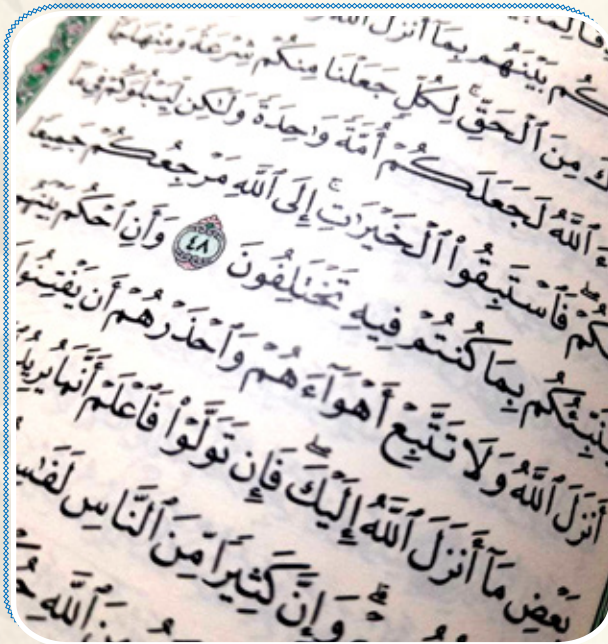 فَٱحْكُم بَيْنَهُم بِمَآ أَنزَلَ ٱللَّهُ
مِنَ ٱلْحَقِّ ۚ لِكُلٍّ جَعَلْنَا مِنكُمْ شِرْعَةً وَمِنْهَاجًا
ٱللَّهُ لَجَعَلَكُمْ أُمَّةً وَٰحِدَةً وَلَٰكِن لِّيَبْلُوَكُمْ فِى مَآ
فَٱسْتَبِقُوا۟ ٱلْخَيْرَٰتِ ۚ إِلَى ٱللَّهِ مَرْجِعُكُمْ جَمِيعًا
فَيُنَبِّئُكُم بِمَا كُنتُمْ فِيهِ تَخْتَلِفُونَ ٤٨ وَأَنِ ٱحْكُم بَيْنَهُم
أَنزَلَ ٱللَّهُ وَلَا تَتَّبِعْ أَهْوَآءَهُمْ وَٱحْذَرْهُمْ أَن يَفْتِنُوكَ
بَعْضِ مَآ أَنزَلَ ٱللَّهُ إِلَيْكَ ۖ فَإِن تَوَلَّوْا۟ فَٱعْلَمْ أَنَّمَا يُرِيدُ
وَإِنَّ كَثِيرًا مِّنَ ٱلنَّاسِ لَفَٰسِقُونَ
مِنَ ٱللَّهِ